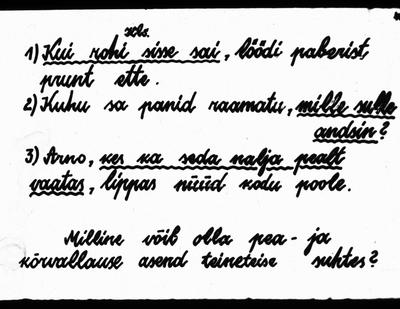 1) Kui rohi sisse sai, löödi paberist
prunt ette.
2) Kuhu sa panid raamatu, mille sulle
andsin?
3) Arno, kes ka seda nalja pealt
vaatas, lippas nüüd kodu poole.
Milline võib olla pea- ja
kõrvallause asend teineteise suhtes?